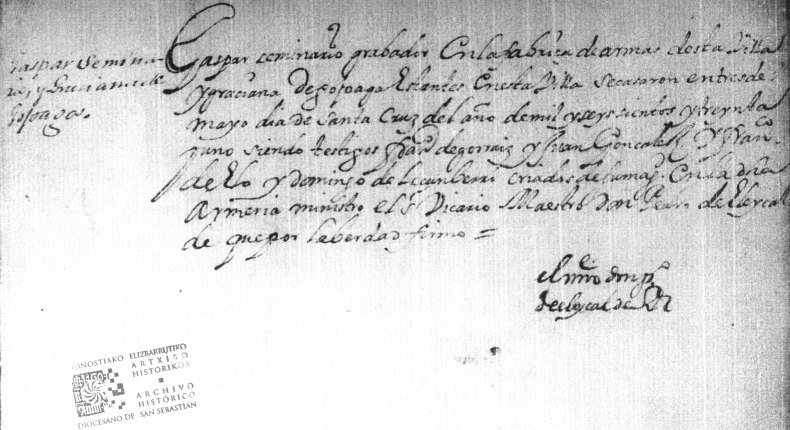 Gaspar Semina
rio, y Graciana de
Gopoaga.
Gaspar seminario grabador En la fabrica de armas desta Villa
y graciana De gopoaga Estantes En esta Villa se casaron en tres de
mayo dia de Santa Cruz del año de mil y seys sientos y treynta
y uno siendo testigos de gorraiz y Juan Gonçalez y fran
de Elo y domingo de Lecunberri criados de su mag. En la dha
Armeria ministro el Sr Vicario Maestro Don Pedro de
de que por la berdad firmo =
el mro don po
de
DONOSTIAKO ELIZBARRUTIKO
ARTXIBO
HISTORIKOA
ARCHIVO
HISTÓRICO
DIOCESANO DE SAN SEBASTIÁN